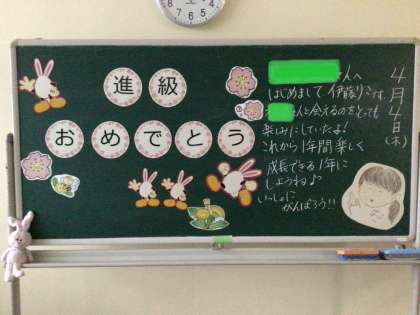 進級
おめでとう
さんへ
はじめまして 伊藤りこです
さんと会えるのをとても
楽しみにしていたよ!
これから1年間楽しく
成長できる1年に
しようね♪
いっしょに
がんばろう!!
4月4日(木)